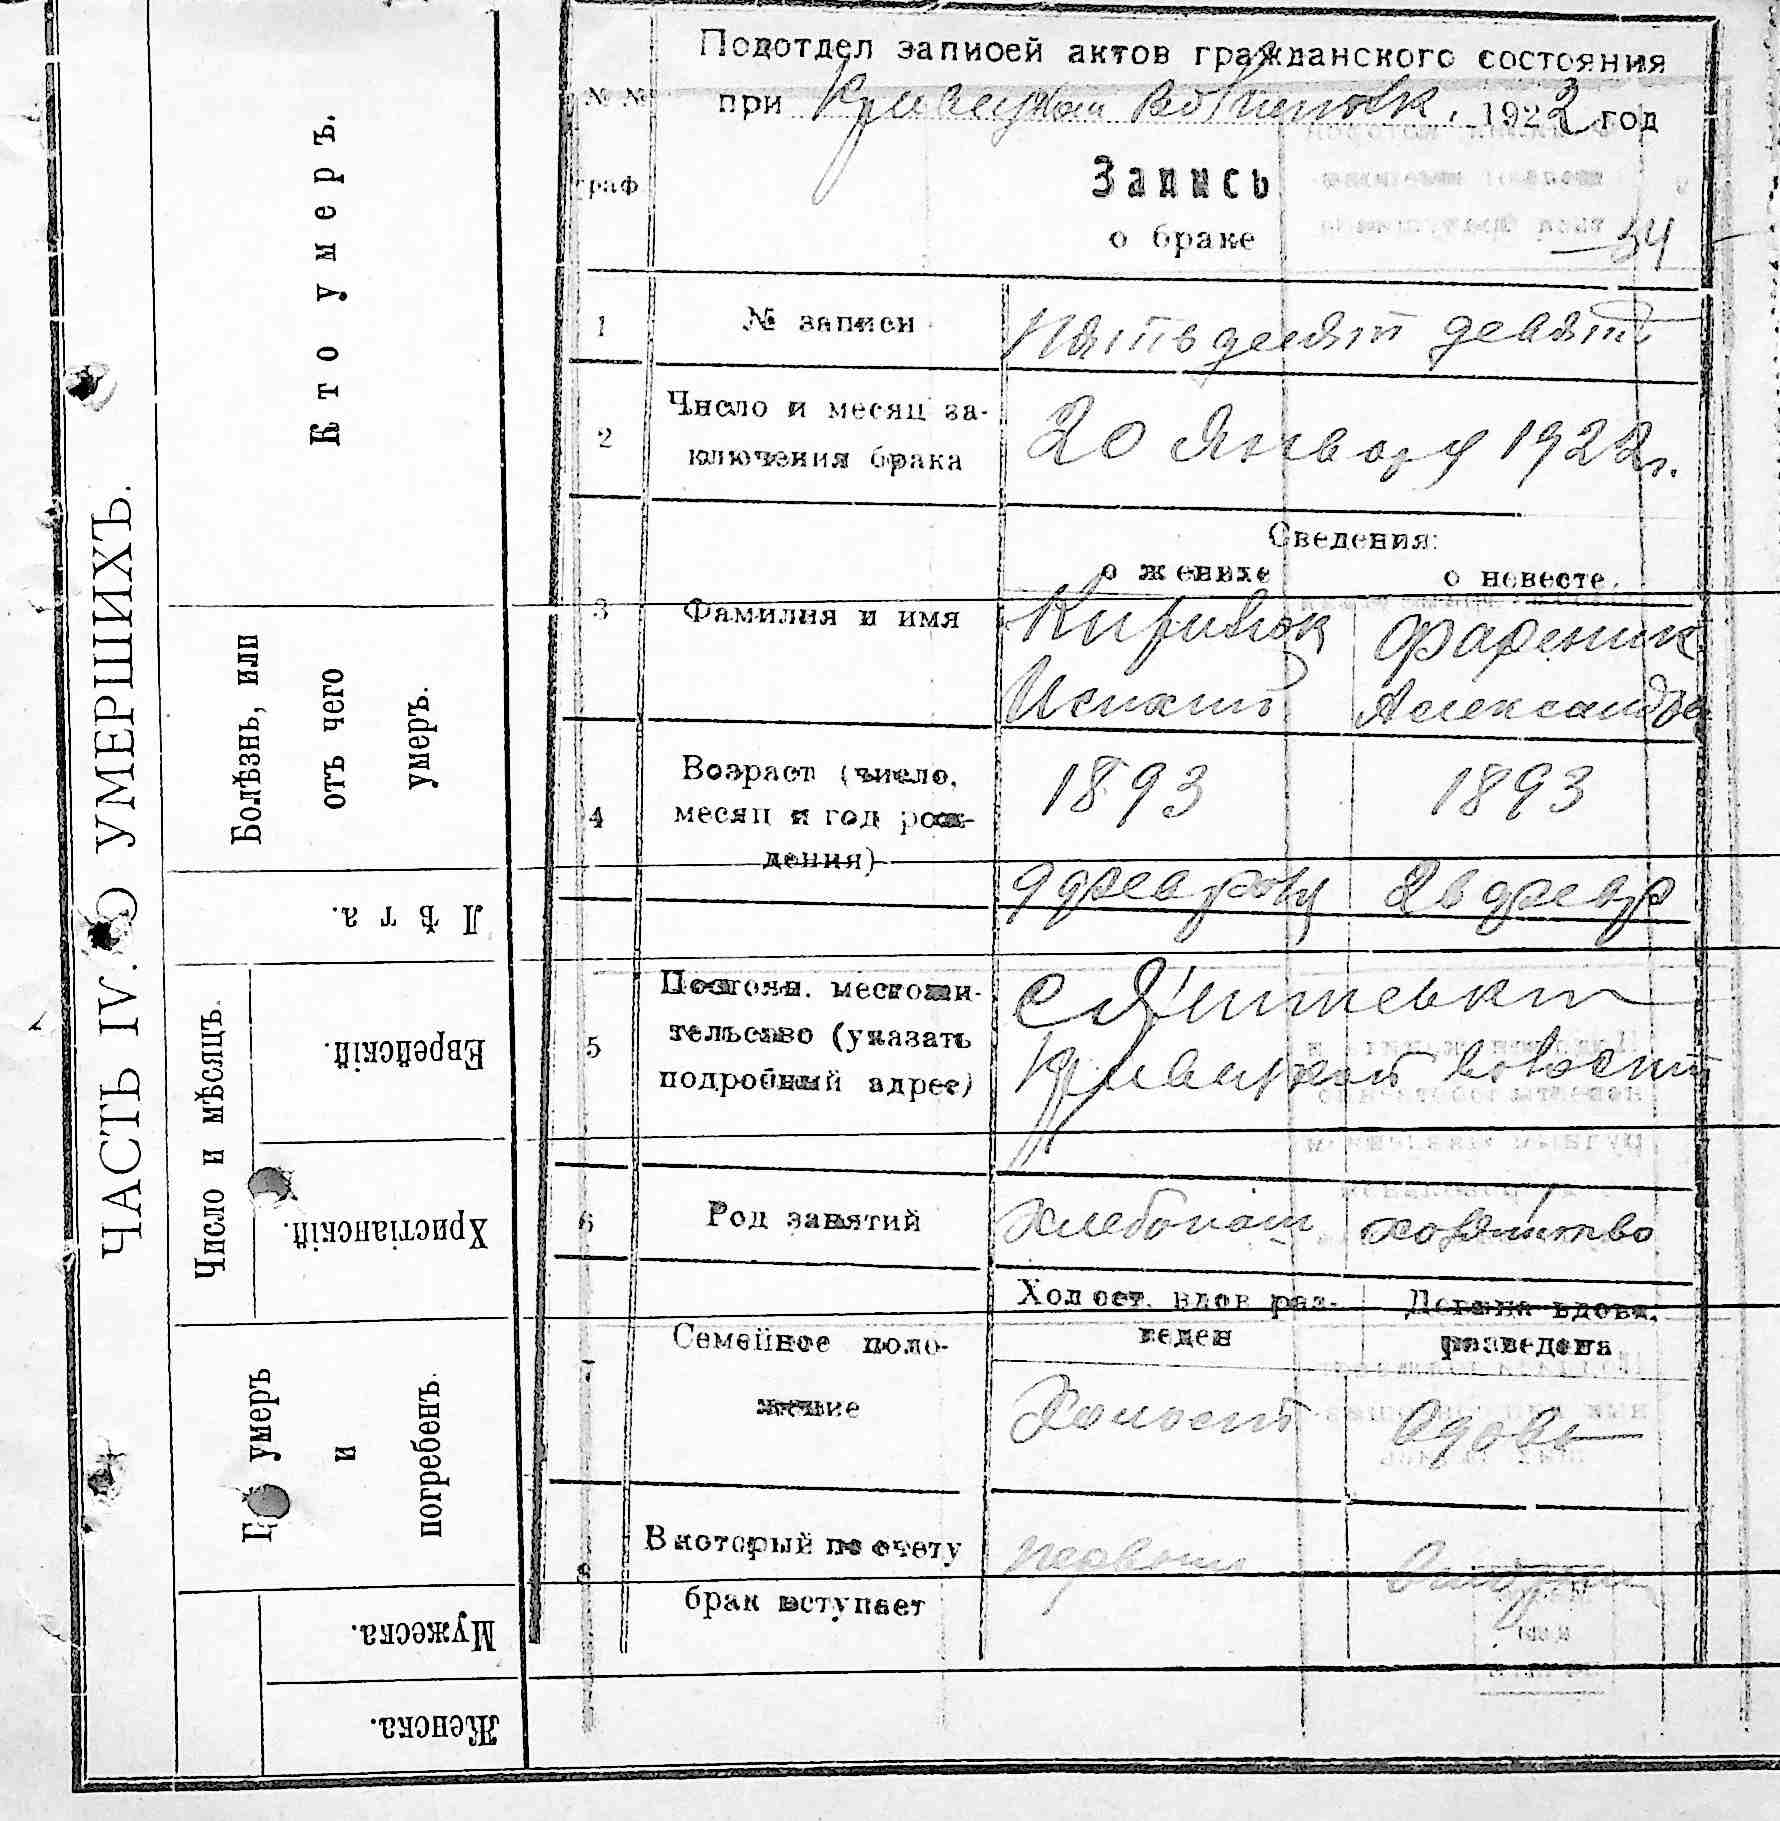 ЧАСТЬ IV. О УМЕРШИХЪ.
Кто умеръ.
Болѣзнь, или
отъ чего
умеръ.
Лѣта.
Число и мѣсяцъ.
Еврейскій.
Христіанскій.
умеръ
и
погребенъ.
Мужеска.
Женска.
Подотдел записей актов гражданского состояния
№ №
при 1922 год
граф
Запись
о браке
34
1 № записи Пятьдесят девять
2 Число и месяц за-
ключения брака 20 Января 1922 г.
Сведения:
о женихе о невесте.
3 Фамилия и имя
Александра
4 Возраст (число, 1893 1893
месяц и год рож-
дения)
9 февраля 26 февр
5 Постоян. местожи-
тельство (указать
подробный адрес) волости
6 Род занятий Хлебопаш хозяйство
Холост, вдов раз- Девица вдова,
веден разведена
7 Семейное поло-
жение Холост Вдова
8 В который по счету первый
брак вступает